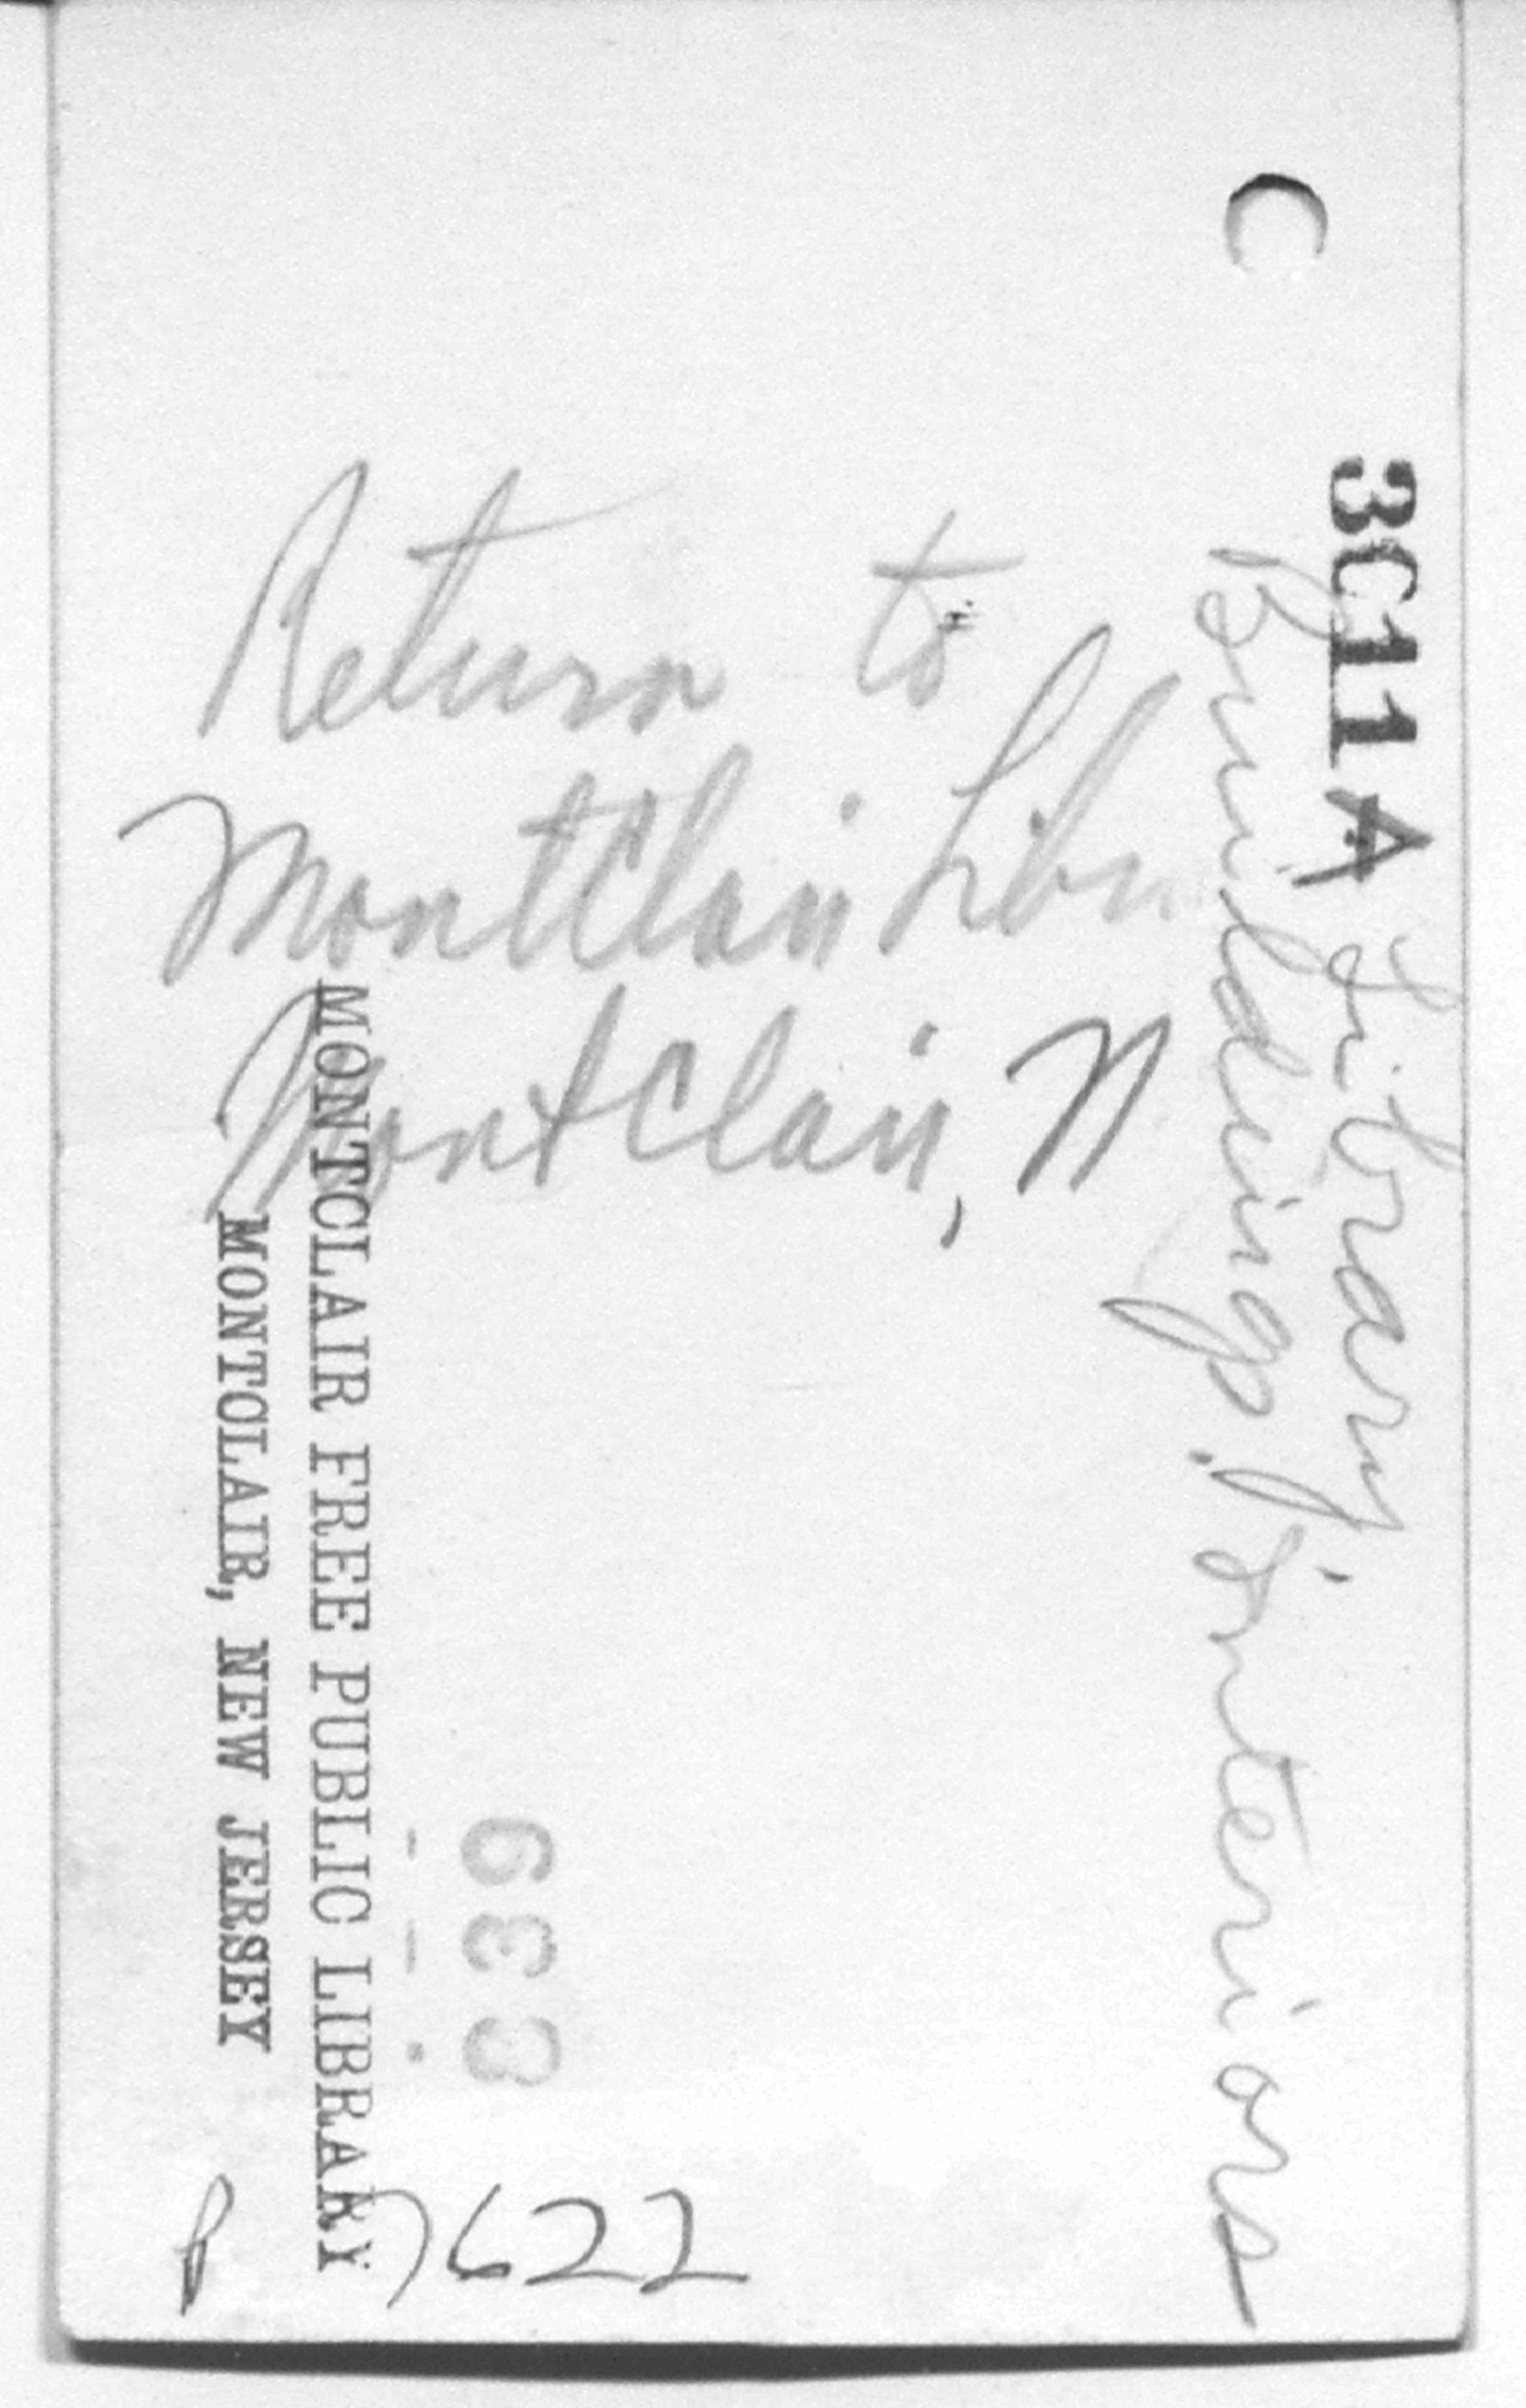 3C11A
Library
Buildings. Interiors
Return to
MontClair Libr.
MontClair, N
MONTCLAIR FREE PUBLIC LIBRARY
MONTCLAIR, NEW JERSEY
7622